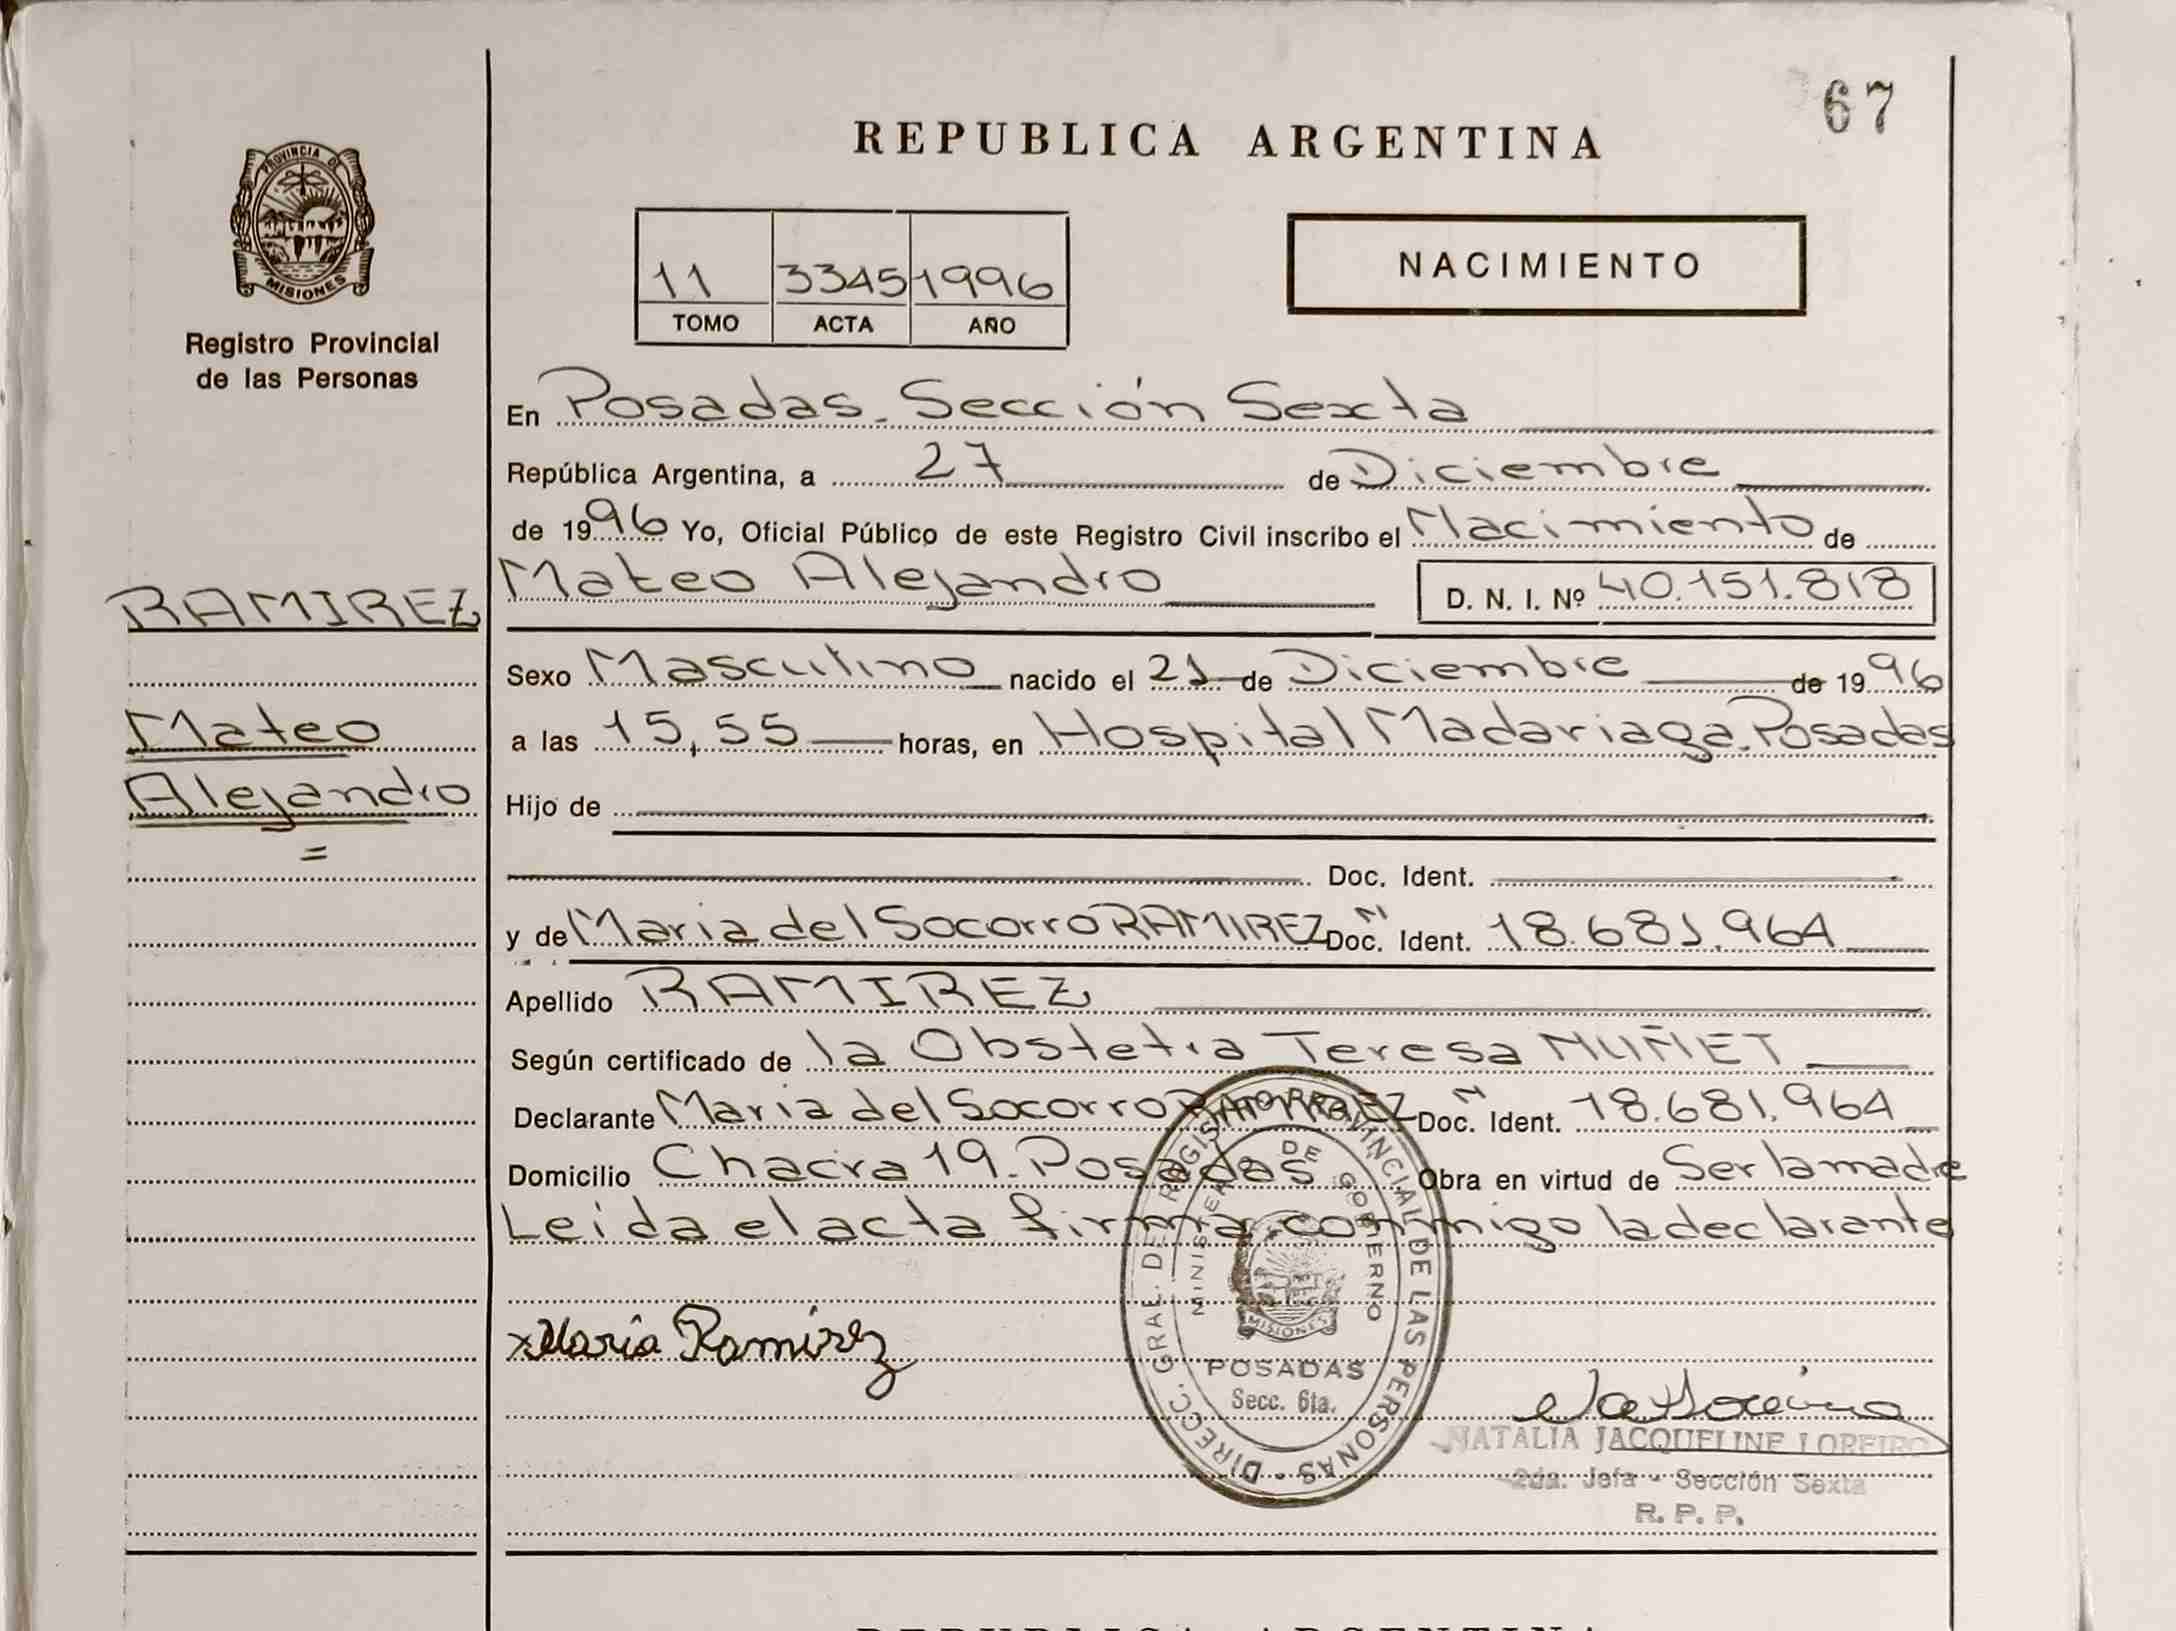 67
REPUBLICA ARGENTINA
PROVINCIA DE
MISIONES
Registro Provincial
de las Personas
11 3345 1996
TOMO ACTA AÑO
NACIMIENTO
En Posadas. Sección Sexta
República Argentina, a 27 de Diciembre
de 1996 Yo, Oficial Público de este Registro Civil inscribo el Nacimiento de
RAMIREZ
Mateo
Alejandro
=
Mateo Alejandro D. N. I. Nº 40.151.818
Sexo Masculino nacido el 21 de Diciembre de 1996
a las 15,55 horas, en Hospital Madariaga. Posadas
Hijo de
Doc. Ident.
y de Maria del Socorro RAMIREZ Doc. Ident. 18.681.964
Apellido RAMIREZ
Según certificado de la Obstetra Teresa MUÑET
Declarante Maria del Socorro RAMIREZ Doc. Ident. 18.681.964
Domicilio Chacra 19. Posadas Obra en virtud de Ser la madre
Leida el acta firma conmigo la declarante
x Maria Ramirez
DIRECC. GRAL. DE REGISTRO PROVINCIAL DE LAS PERSONAS -
MINISTERIO DE GOBIERNO
MISIONES
POSADAS
Secc. 6ta.
NATALIA JACQUELINE LOREIRO
2da. Jefa - Sección Sexta
R. P. P.
REPUBLICA ARGENTINA